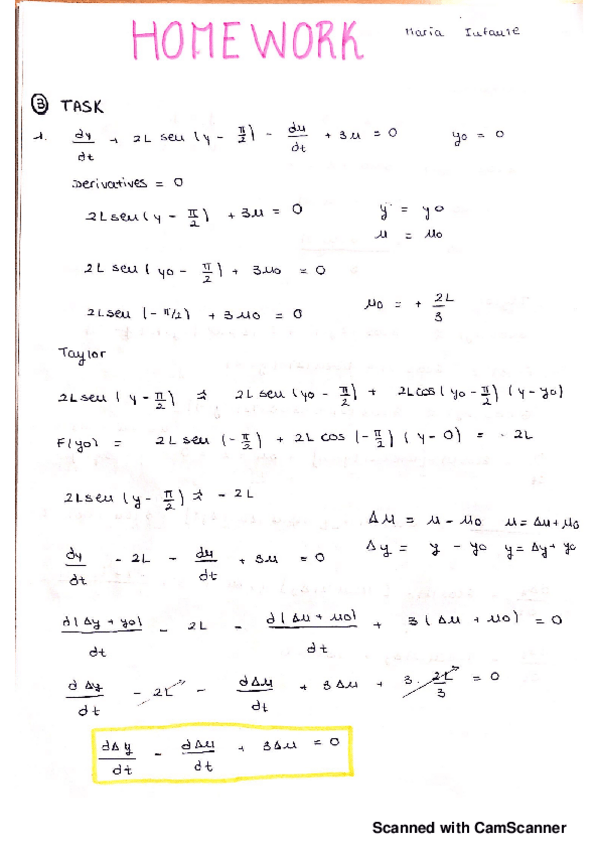 HOMEWORK Maria Infante
③ TASK
1. dy/dt + 2L sen (y - π/2) - du/dt + 3u = 0 y0 = 0
Derivatives = 0
2L sen (y - π/2) + 3u = 0 y = y0
u = u0
2L sen (y0 - π/2) + 3u0 = 0
2L sen (-π/2) + 3u0 = 0 u0 = + 2L/3
Taylor
2L sen (y - π/2) ≈ 2L sen (y0 - π/2) + 2L cos (y0 - π/2) (y - y0)
F(y0) = 2L sen (-π/2) + 2L cos (-π/2) (y - 0) = - 2L
2L sen (y - π/2) ≈ - 2L
Δu = u - u0 u = Δu + u0
Δy = y - y0 y = Δy + y0
dy/dt - 2L - du/dt + 3u = 0
d(Δy + y0)/dt - 2L - d(Δu + u0)/dt + 3 (Δu + u0) = 0
dΔy/dt - 2L - dΔu/dt + 3Δu + 3 · 2L/3 = 0
dΔy/dt - dΔu/dt + 3Δu = 0
Scanned with CamScanner